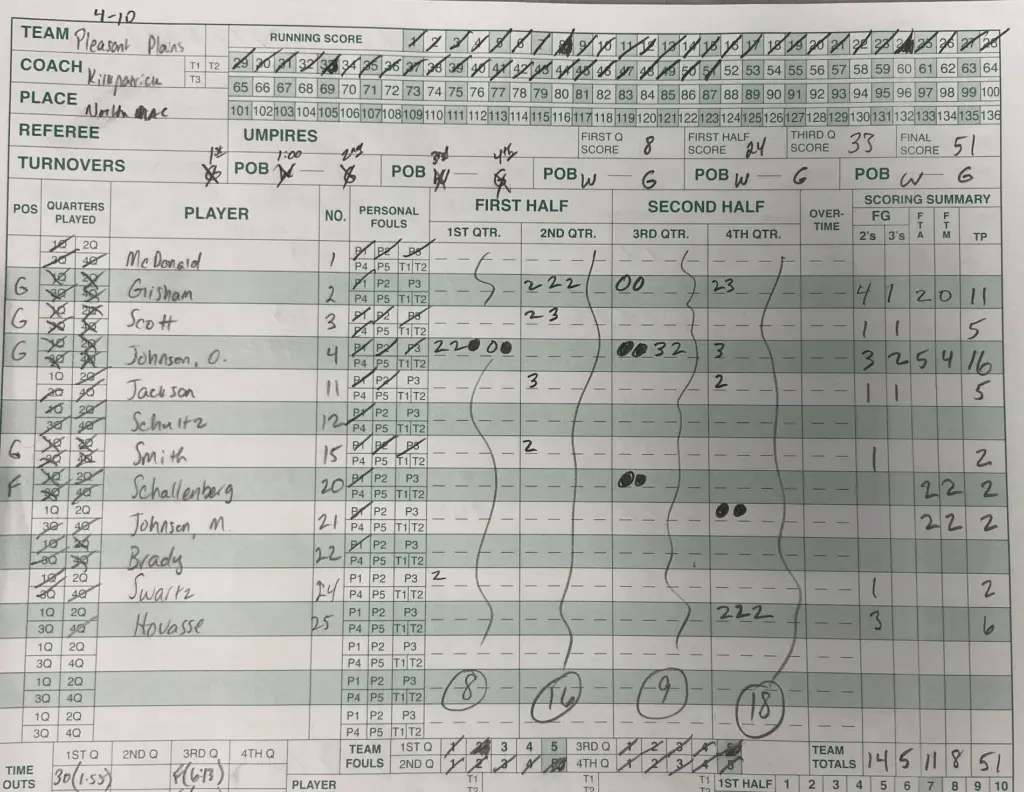 4-10
TEAM Pleasant Plains RUNNING SCORE 1 2 3 4 5 6 7 8 9 10 11 12 13 14 15 16 17 18 19 20 21 22 23 24 25 26 27 28
COACH Kilkpatrick T1 T2 T3 29 30 31 32 33 34 35 36 37 38 39 40 41 42 43 44 45 46 47 48 49 50 51 52 53 54 55 56 57 58 59 60 61 62 63 64
65 66 67 68 69 70 71 72 73 74 75 76 77 78 79 80 81 82 83 84 85 86 87 88 89 90 91 92 93 94 95 96 97 98 99 100
PLACE North Mac 101 102 103 104 105 106 107 108 109 110 111 112 113 114 115 116 117 118 119 120 121 122 123 124 125 126 127 128 129 130 131 132 133 134 135 136
REFEREE UMPIRES FIRST Q SCORE 8 FIRST HALF SCORE 24 THIRD Q SCORE 33 FINAL SCORE 51
1st 1:00 2nd 3rd 4th
TURNOVERS G POB W — G POB W — G POB W — G POB W — G POB W — G
POS QUARTERS PLAYED PLAYER NO. PERSONAL FOULS FIRST HALF SECOND HALF OVER-TIME SCORING SUMMARY
1ST QTR. 2ND QTR. 3RD QTR. 4TH QTR. FG 2's 3's FTA FTM TP
1Q 2Q 3Q 4Q McDonald 1 P1 P2 P3 P4 P5 T1 T2
G 1Q 2Q 3Q 4Q Grisham 2 P1 P2 P3 P4 P5 T1 T2 2 2 2 0 0 2 3 4 1 2 0 11
G 1Q 2Q 3Q 4Q Scott 3 P1 P2 P3 P4 P5 T1 T2 2 3 1 1 5
G 1Q 2Q 3Q 4Q Johnson, O. 4 P1 P2 P3 P4 P5 T1 T2 2 2 0 0 0 0 0 3 2 3 3 2 5 4 16
1Q 2Q 3Q 4Q Jackson 11 P1 P2 P3 P4 P5 T1 T2 3 2 1 1 5
1Q 2Q 3Q 4Q Schultz 12 P1 P2 P3 P4 P5 T1 T2
G 1Q 2Q 3Q 4Q Smith 15 P1 P2 P3 P4 P5 T1 T2 2 1 2
F 1Q 2Q 3Q 4Q Schallenberg 20 P1 P2 P3 P4 P5 T1 T2 2 2 2
1Q 2Q 3Q 4Q Johnson, M. 21 P1 P2 P3 P4 P5 T1 T2 2 2 2
1Q 2Q 3Q 3Q Brady 22 P1 P2 P3 P4 P5 T1 T2
1Q 2Q 3Q 4Q Swartz 24 P1 P2 P3 P4 P5 T1 T2 2 1 2
1Q 2Q 3Q 4Q Hovasse 25 P1 P2 P3 P4 P5 T1 T2 2 2 2 3 6
1Q 2Q 3Q 4Q P1 P2 P3 P4 P5 T1 T2
1Q 2Q 3Q 4Q P1 P2 P3 P4 P5 T1 T2 8 16 9 18
1Q 2Q 3Q 4Q P1 P2 P3 P4 P5 T1 T2
TIME OUTS 1ST Q 2ND Q 3RD Q 4TH Q TEAM FOULS 1ST Q 1 2 3 4 5 3RD Q 1 2 3 4 5 TEAM TOTALS 14 5 11 8 51
30(1:55) F(6:13) 2ND Q 1 2 3 4 5 4TH Q 1 2 3 4 5
PLAYER T1 T2 T1 T2 T1 T2 1ST HALF 1 2 3 4 5 6 7 8 9 10